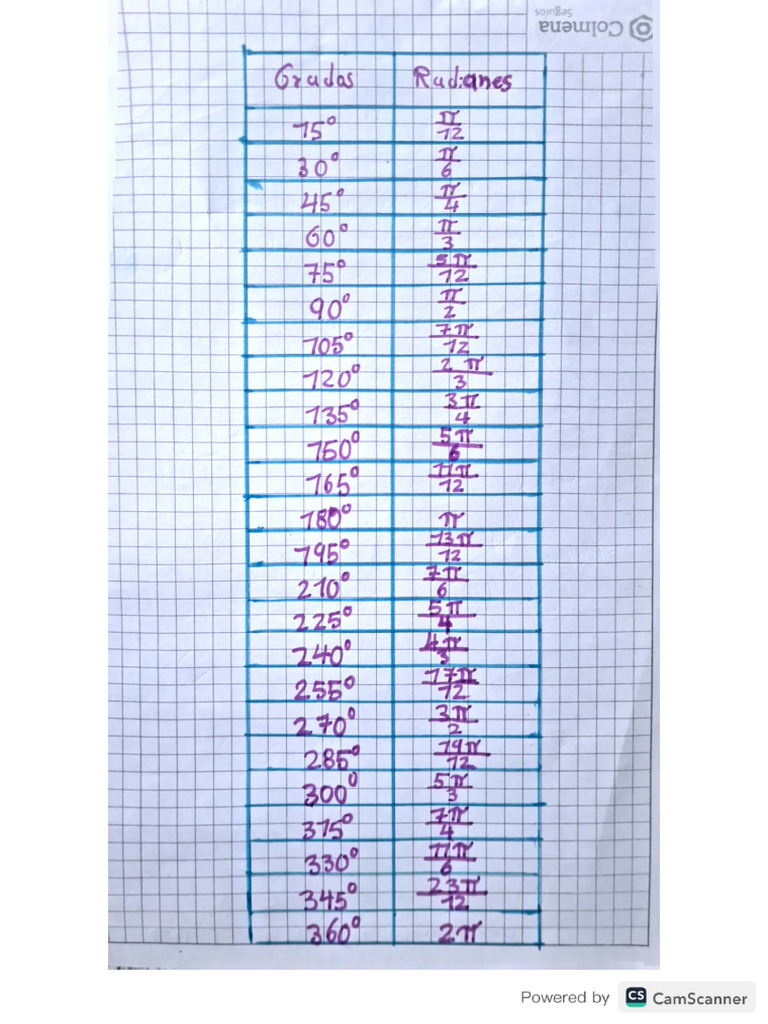 Colmena
Seguros
Grados Radianes
15° π/12
30° π/6
45° π/4
60° π/3
75° 5π/12
90° π/2
105° 7π/12
120° 2π/3
135° 3π/4
150° 5π/6
165° 11π/12
180° π
195° 13π/12
210° 7π/6
225° 5π/4
240° 4π/3
255° 17π/12
270° 3π/2
285° 19π/12
300° 5π/3
315° 7π/4
330° 11π/6
345° 23π/12
360° 2π
Powered by CS CamScanner